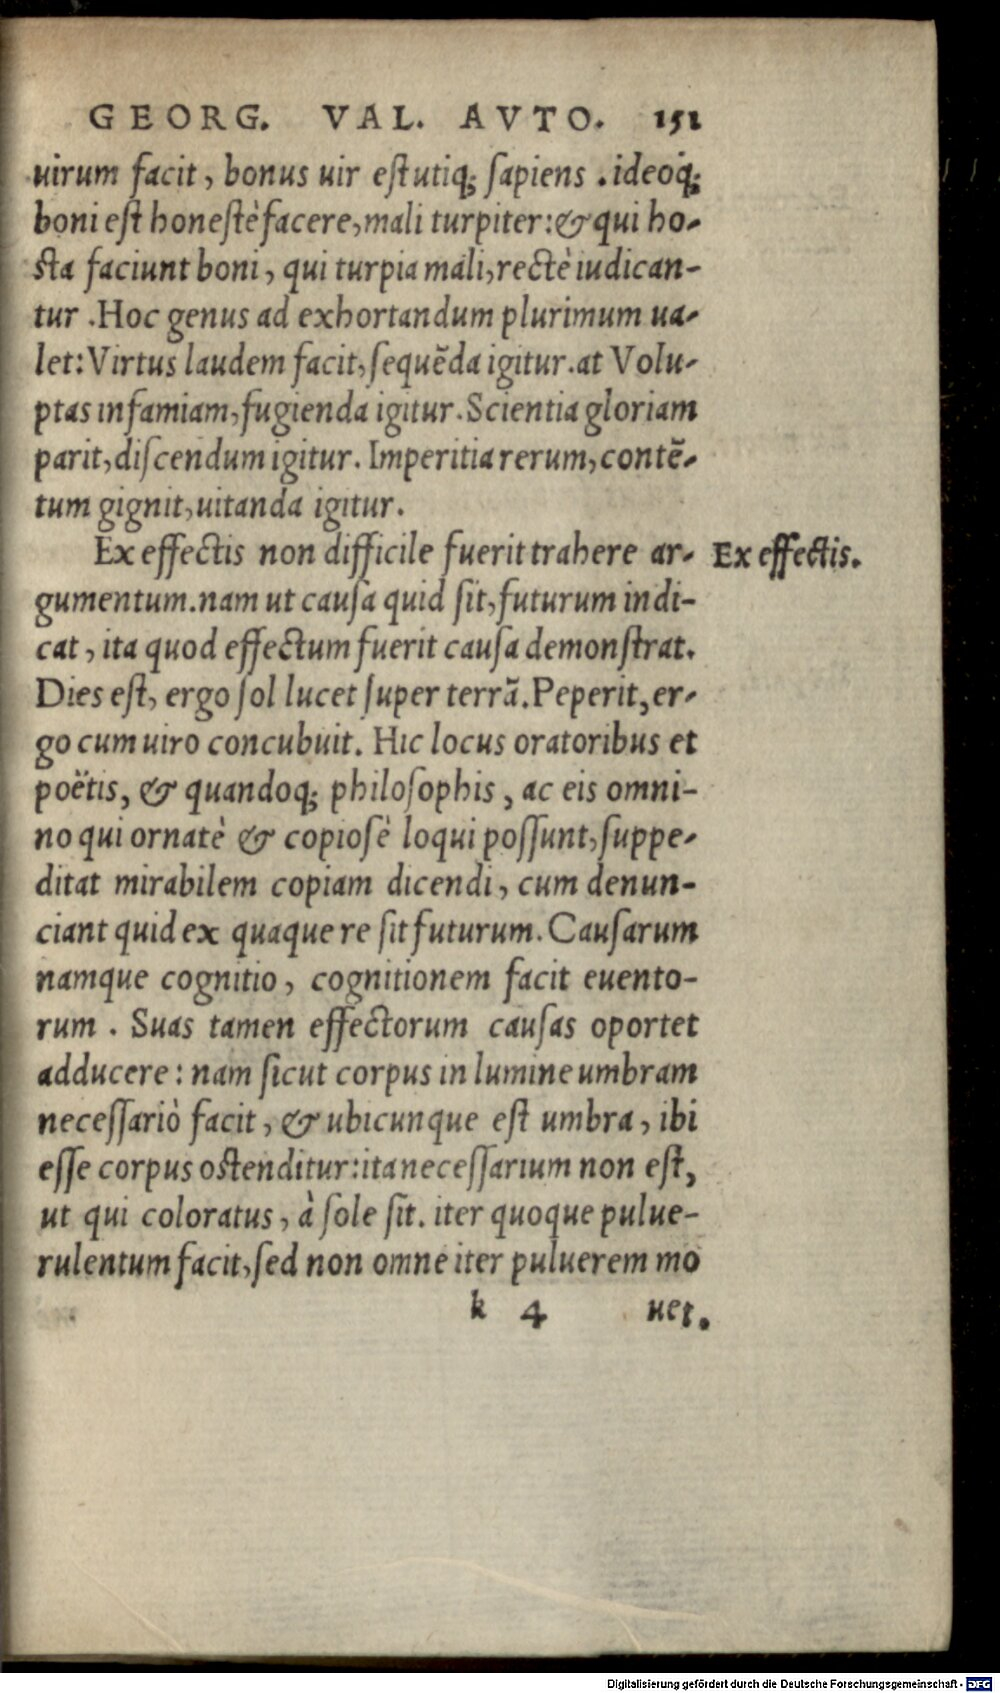 GEORG. VAL. AVTO. 151
uirum facit, bonus uir est utiq; sapiens . ideoq;
boni est honestè facere, mali turpiter: & qui ho-
sta faciunt boni, qui turpia mali, rectè iudican-
tur . Hoc genus ad exhortandum plurimum ua-
let: Virtus laudem facit, sequēda igitur. at Volu-
ptas infamiam, fugienda igitur. Scientia gloriam
parit, discendum igitur. Imperitia rerum, contē-
tum gignit, uitanda igitur.
Ex effectis non difficile fuerit trahere ar-
Ex effectis.
gumentum. nam ut causa quid sit, futurum indi-
cat, ita quod effectum fuerit causa demonstrat.
Dies est, ergo sol lucet super terrā. Peperit, er-
go cum uiro concubuit. Hic locus oratoribus et
poëtis, & quandoq; philosophis, ac eis omni-
no qui ornatè & copiosè loqui possunt, suppe-
ditat mirabilem copiam dicendi, cum denun-
ciant quid ex quaque re sit futurum. Causarum
namque cognitio, cognitionem facit euento-
rum . Suas tamen effectorum causas oportet
adducere: nam sicut corpus in lumine umbram
necessariò facit, & ubicunque est umbra, ibi
esse corpus ostenditur: ita necessarium non est,
ut qui coloratus, à sole sit. iter quoque pulue-
rulentum facit, sed non omne iter puluerem mo
k 4 uet.
Digitalisierung gefördert durch die Deutsche Forschungsgemeinschaft - DFG